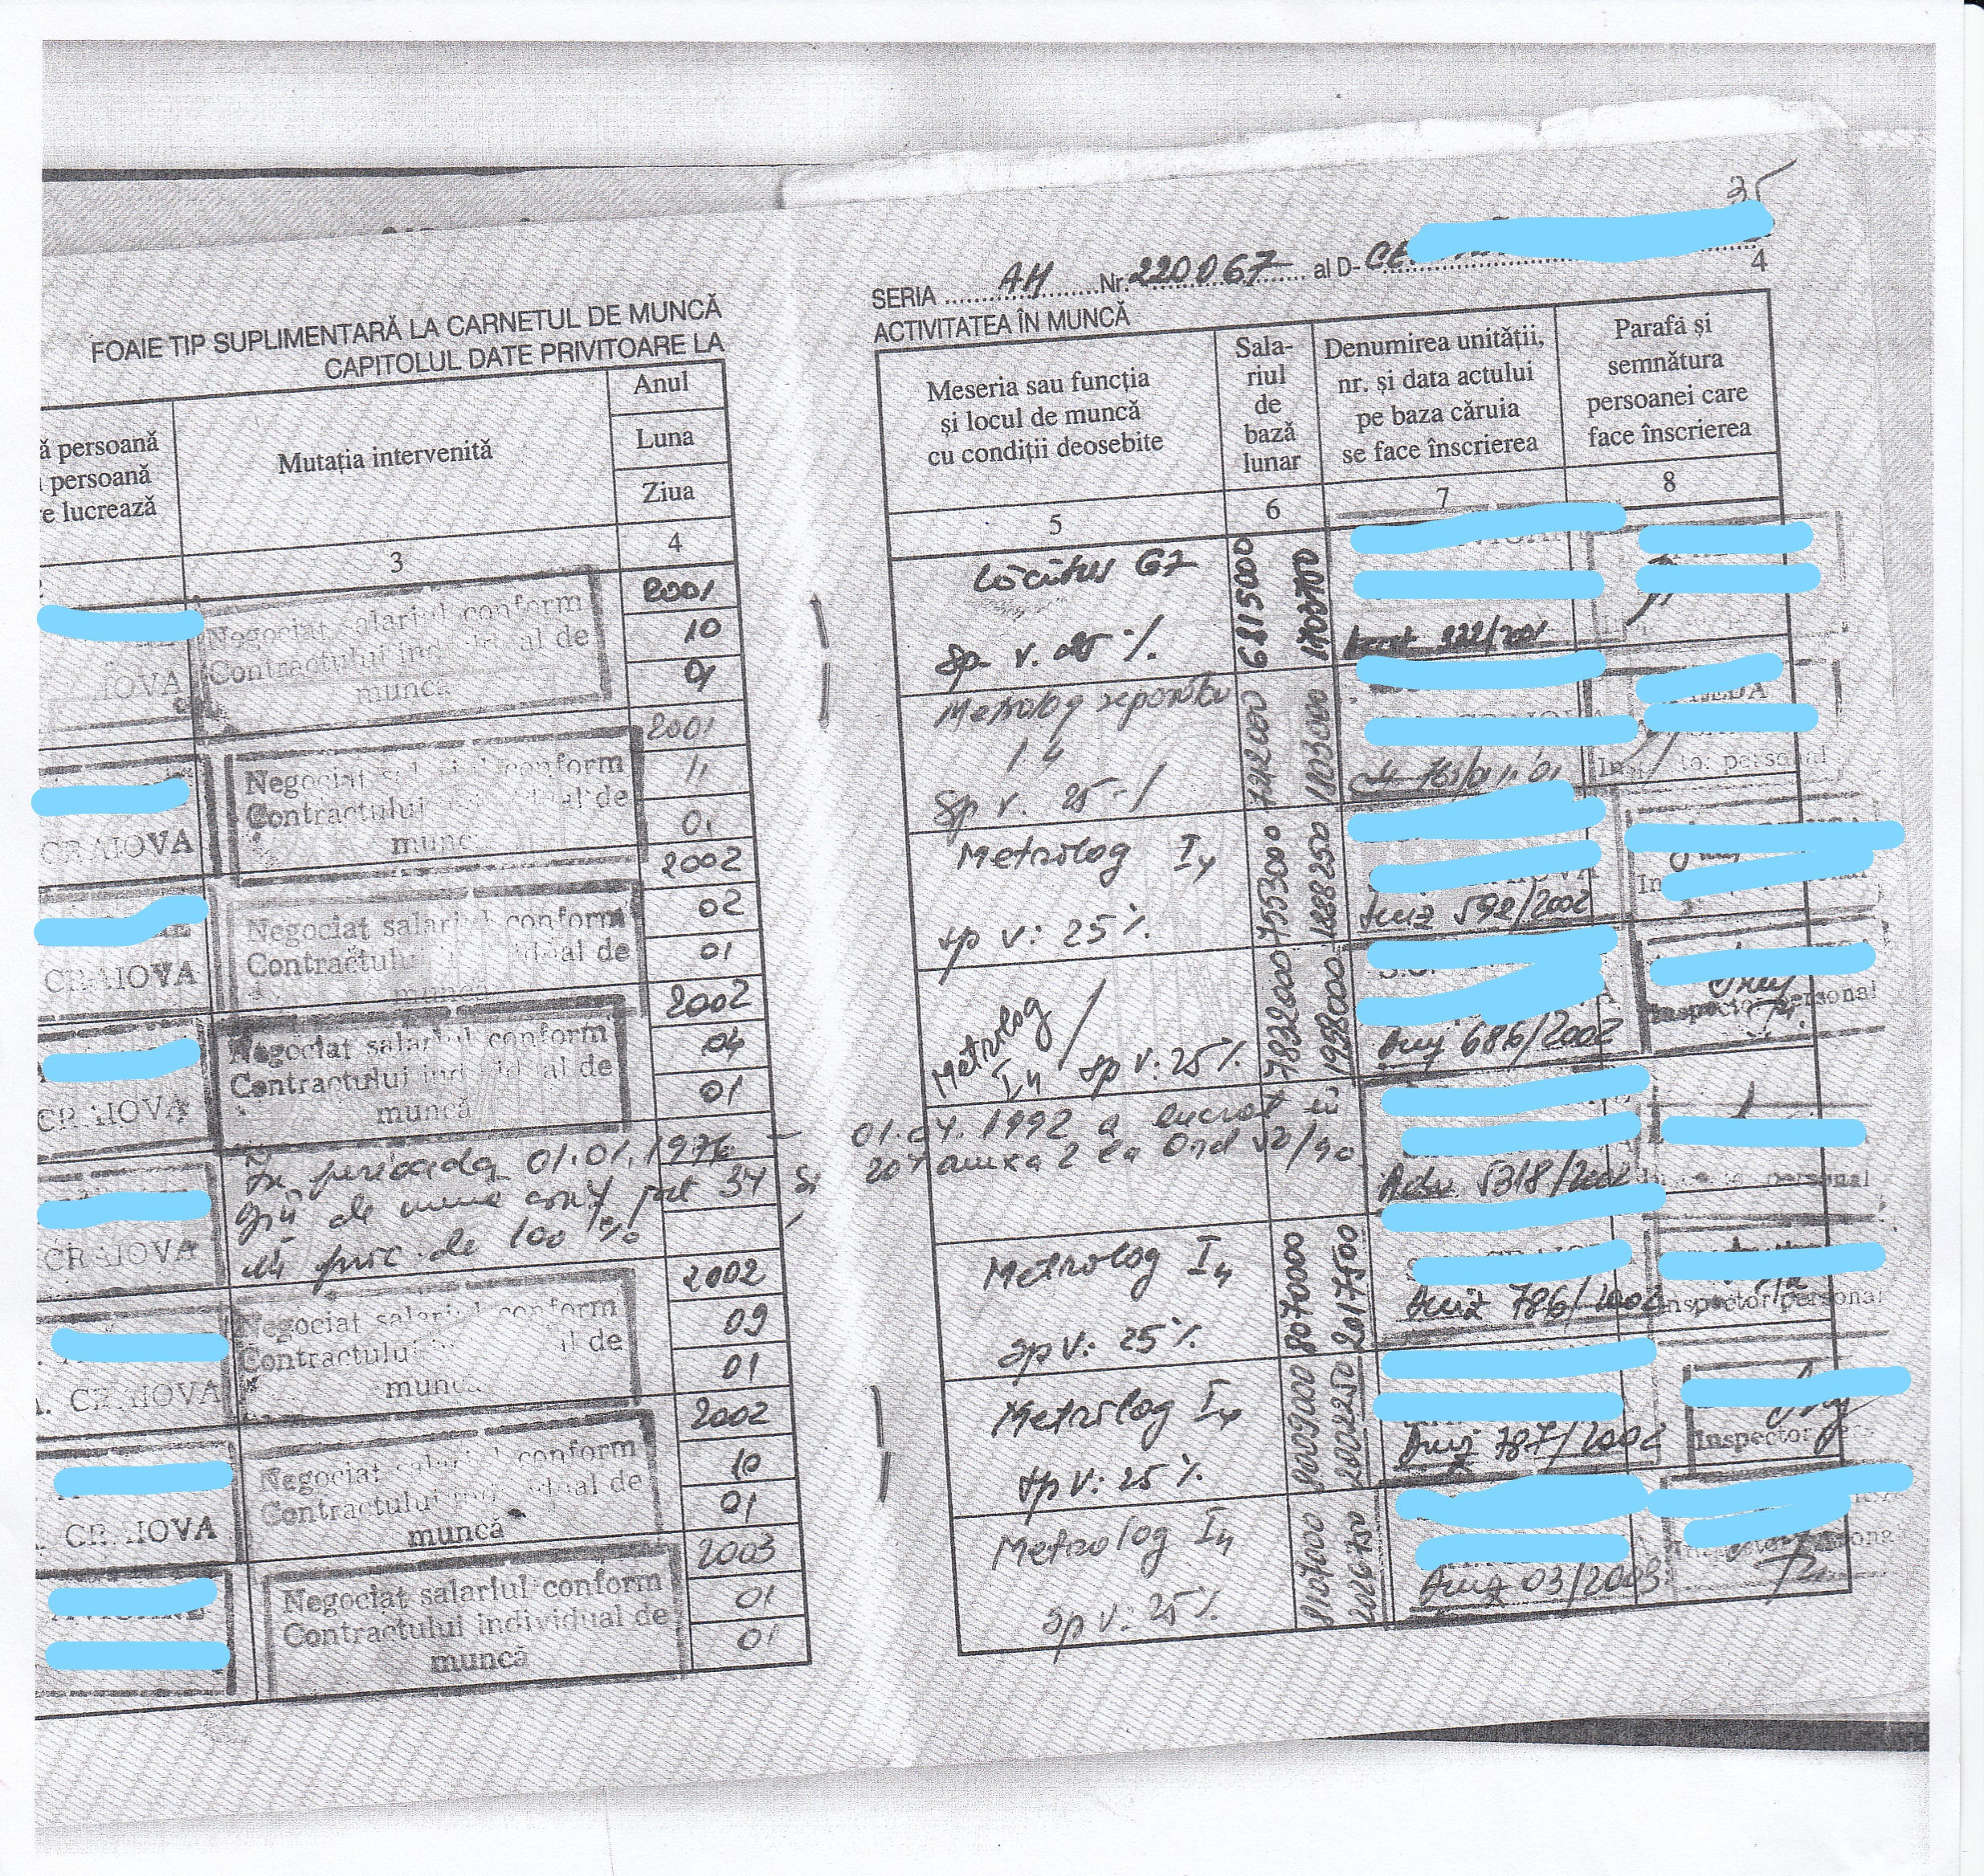 35
SERIA AH Nr. 220067 al D- CE
4
FOAIE TIP SUPLIMENTARĂ LA CARNETUL DE MUNCĂ
CAPITOLUL DATE PRIVITOARE LA
ACTIVITATEA ÎN MUNCĂ
ă persoană
persoană
e lucrează
Mutația intervenită
Anul
Luna
Ziua
Meseria sau funcția
și locul de muncă
cu condiții deosebite
Sala-
riul
de
bază
lunar
Denumirea unității,
nr. și data actului
pe baza căruia
se face înscrierea
Parafă și
semnătura
persoanei care
face înscrierea
3
4
5
6
7
8
IOVA
Negociat salariul conform
Contractului individual de
muncă
2001
10
01
Lăcătuș G7
Sp. v. 25 %
6815000
222/2001
CRAIOVA
Negociat salariul conform
Contractului individual de
munc
2001
11
01
Metrolog
I 4
Sp v. 25
personal
CRAIOVA
Negociat salariul conform
Contractului individual de
muncă
2002
02
01
Metrolog I4
sp v: 25 %
7553000
1888250
592/2002
CRAIOVA
Negociat salariul conform
Contractului individual de
muncă
2002
04
01
Metrolog I4
sp v: 25 %
7832000
1958000
686/2002
Inspector personal
CRAIOVA
În perioada 01.01.1976 - 01.04.1992 a lucrat în
gr. II de muncă conf pct 37 și 207 anexa 2 la Ord 52/90
în proc. de 100 %
Adev 5318/2002
personal
CRAIOVA
Negociat salariul conform
Contractului individual de
muncă
2002
09
01
Metrolog I4
sp v: 25 %
8070000
2017500
786/2002
Inspector personal
CRAIOVA
Negociat salariul conform
Contractului individual de
muncă
2002
10
01
Metrolog I4
sp v: 25 %
8009000
2002250
787/2002
Inspector
Negociat salariul conform
Contractului individual de
muncă
2003
01
01
Metrolog I4
Sp v: 25 %
8107000
2026750
03/2003